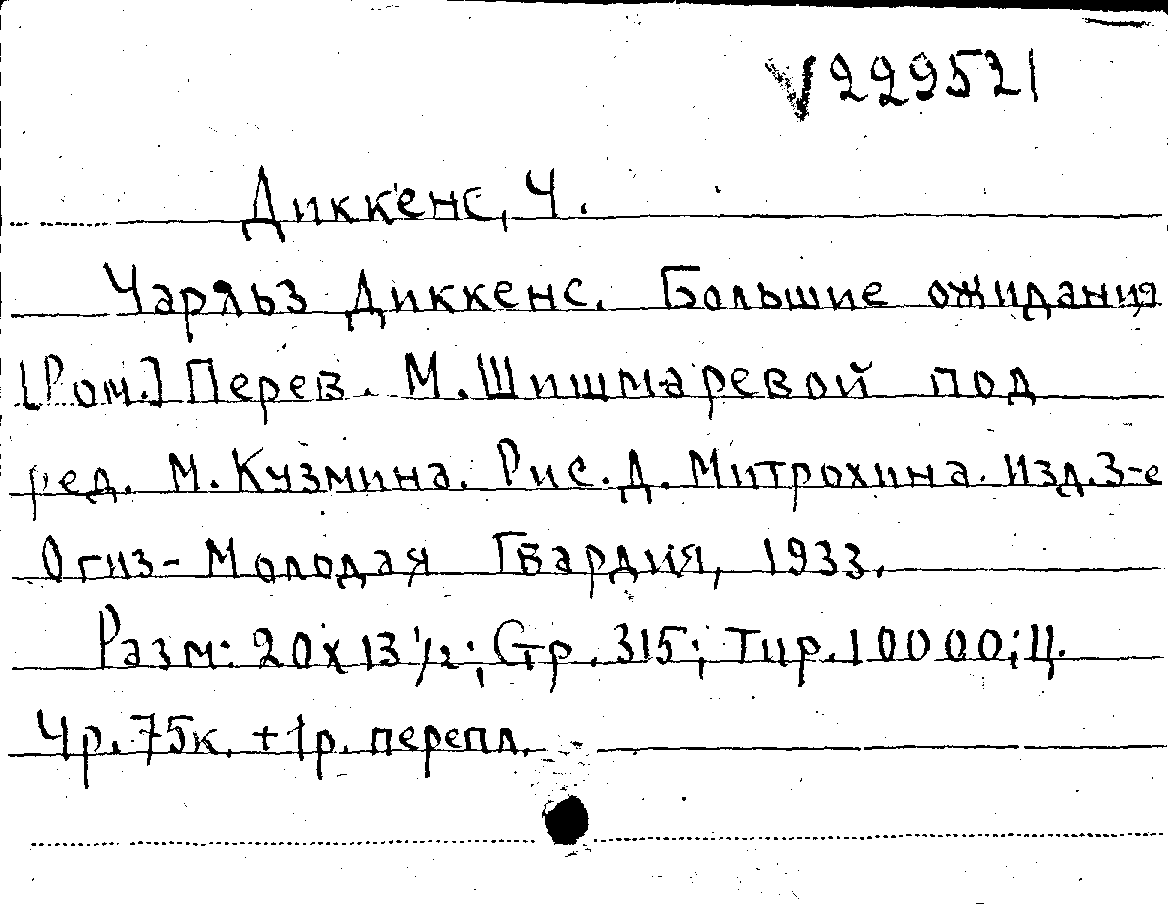 V229521
Диккенс, Ч.
Чарльз Диккенс. Большие ожидания
[Ром.] Перев. М. Шишмаревой под
ред. М. Кузмина. Рис. Д. Митрохина. Изд. 3-е
Огиз-Молодая Гвардия, 1933.
Разм: 20 х 13 1/2; Стр. 315; Тир. 10000; Ц.
4р. 75к. + 1р. перепл.